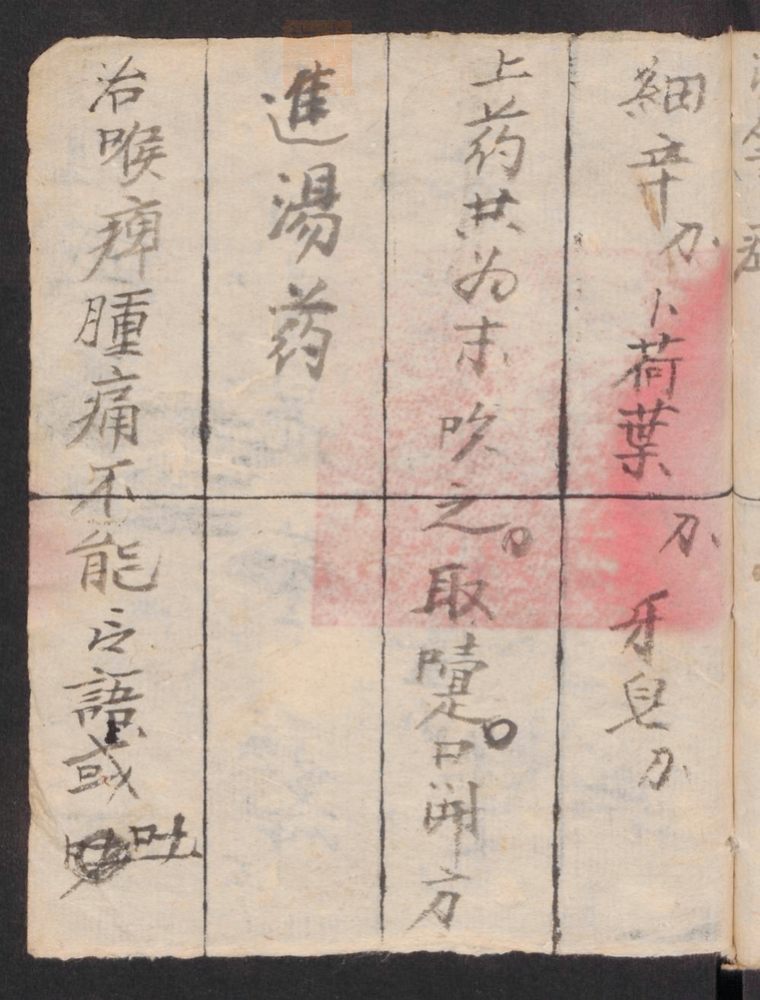 細辛 刀 卜荷葉 刀 牙皂 刀
上药共为末吹之。取嚏。口開方
進湯药
治喉痺腫痛不能言語或吐